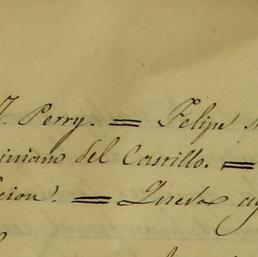 J. Perry. = Felipe
del Castillo. =
cion. = Queda